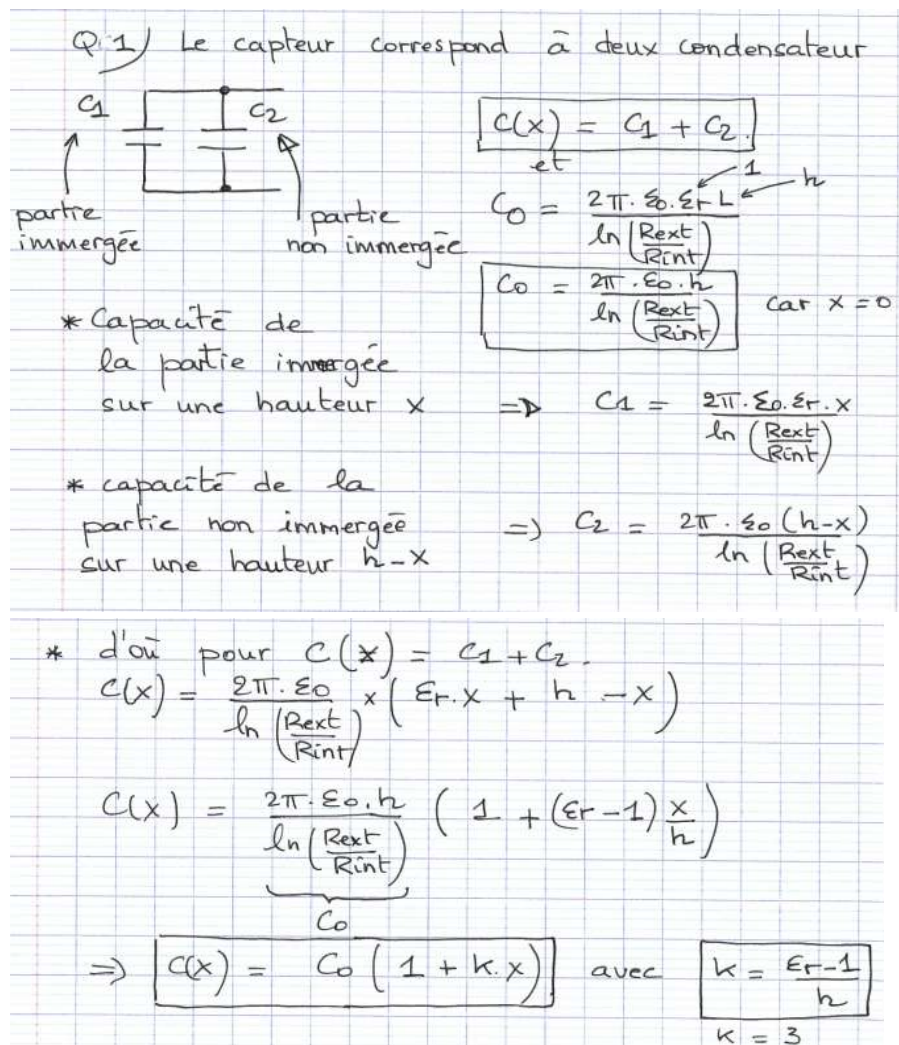 Q.1) Le capteur correspond à deux condensateur
C1 C2
C(x) = C1 + C2.
et
partie immergée
partie non immergée
C0 = 2π.ε0.εr L / ln(Rext/Rint)
1
h
C0 = 2π.ε0.h / ln(Rext/Rint) car x = 0
* Capacité de
la partie immergée
sur une hauteur x => C1 = 2π.ε0.εr.x / ln(Rext/Rint)
* capacité de la
partie non immergée => C2 = 2π.ε0(h-x) / ln(Rext/Rint)
sur une hauteur h-x
* d'où pour C(x) = C1 + C2.
C(x) = 2π.ε0 / ln(Rext/Rint) × (εr.x + h - x)
C(x) = 2π.ε0.h / ln(Rext/Rint) (1 + (εr-1) x/h)
C0
=> C(x) = C0 (1 + k.x) avec k = εr-1 / h
k = 3